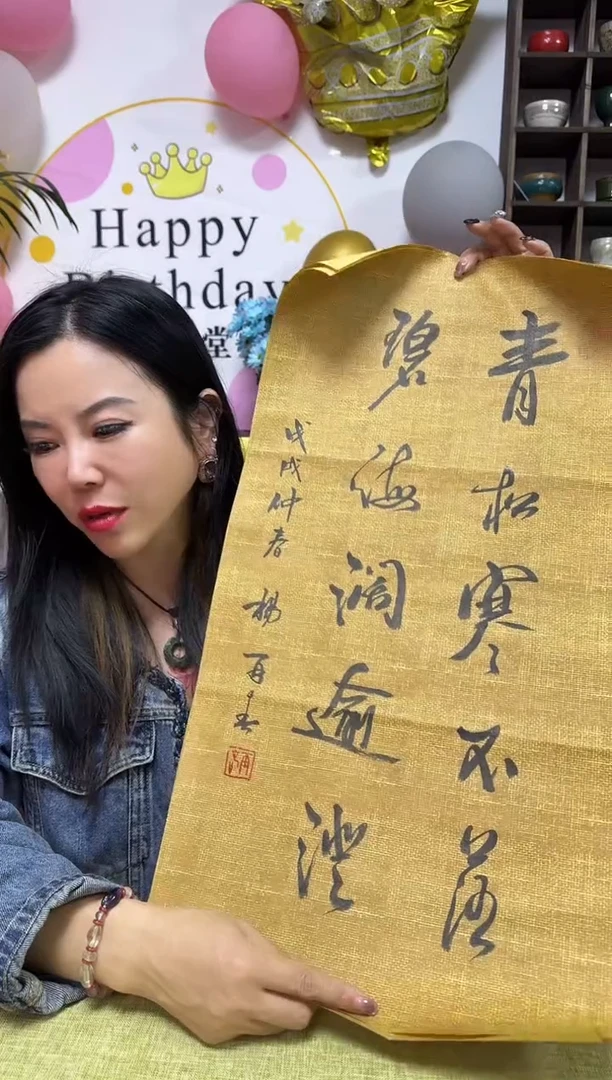 Happy
Birthday
堂
青松寒不落
碧海阔逾澄
戊戌仲春 杨再春